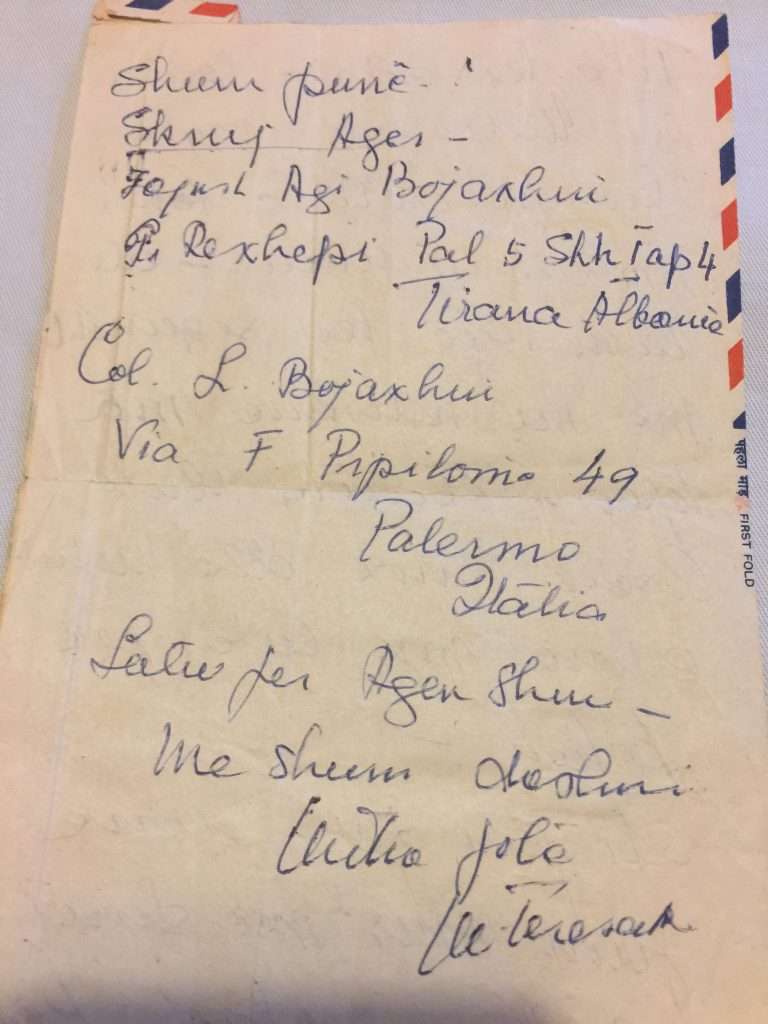 Shum punë.
Skruj Ages –
Agi Bojaxhui
Rexhepi Pal 5 Shh Tap 4
Tirana Albania
Col. L. Bojaxhui
Via F Pipitomo 49
Palermo
Itália
per Agen shum –
Me shum dashuri
jote
M Teresa
पहला मोड़ FIRST FOLD